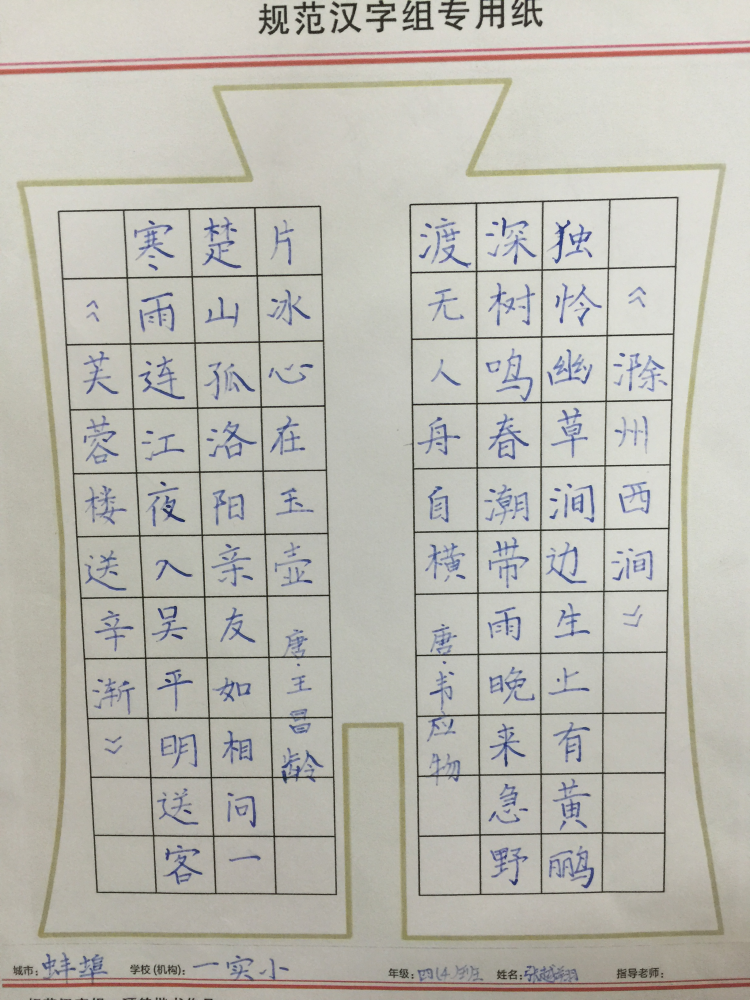 规范汉字组专用纸
《滁州西涧》
独怜幽草涧边生上有黄鹂
深树鸣春潮带雨晚来急野
渡无人舟自横 唐·韦应物
《芙蓉楼送辛渐》
寒雨连江夜入吴平明送客
楚山孤洛阳亲友如相问一
片冰心在玉壶 唐·王昌龄
城市：蚌埠 学校(机构)：一实小 年级：四(4)班 姓名： 指导老师：